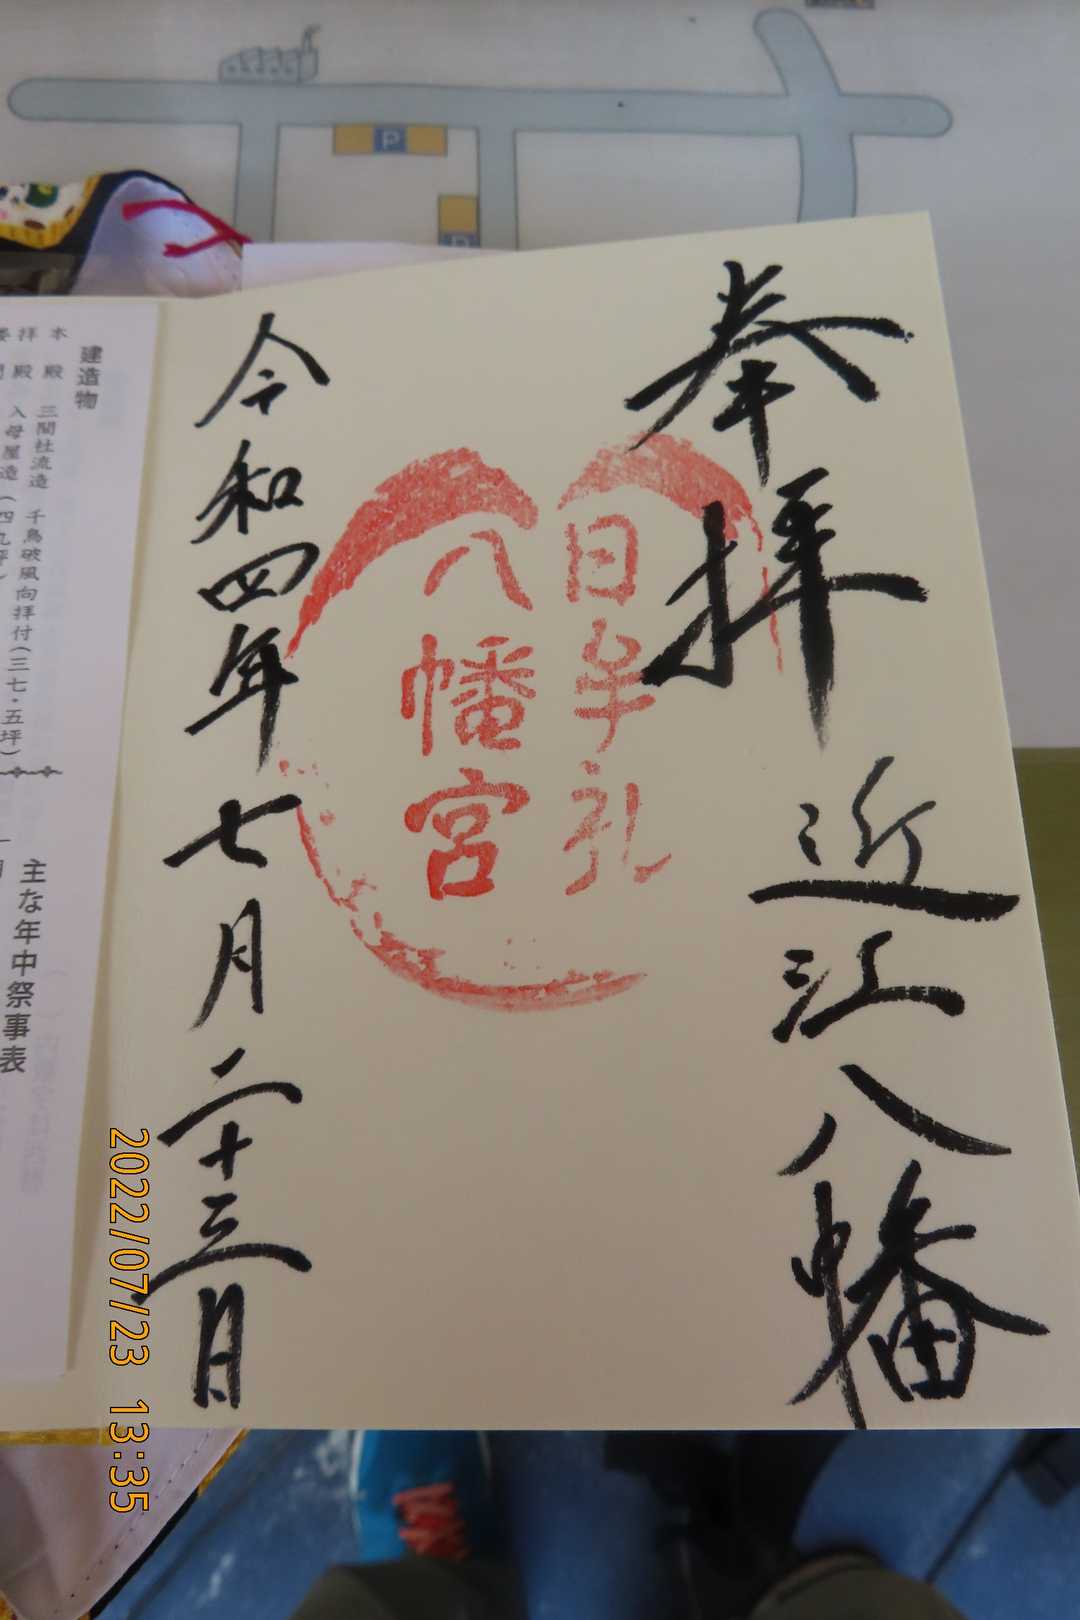 奉拝
近江八幡
日牟礼
八幡宮
令和四年七月二十三日
建造物
本殿 三間社流造 千鳥破風向拝付(三七・五坪)
拝殿 入母屋造(四九坪)
主な年中祭事表
P
2022/07/23 13:35